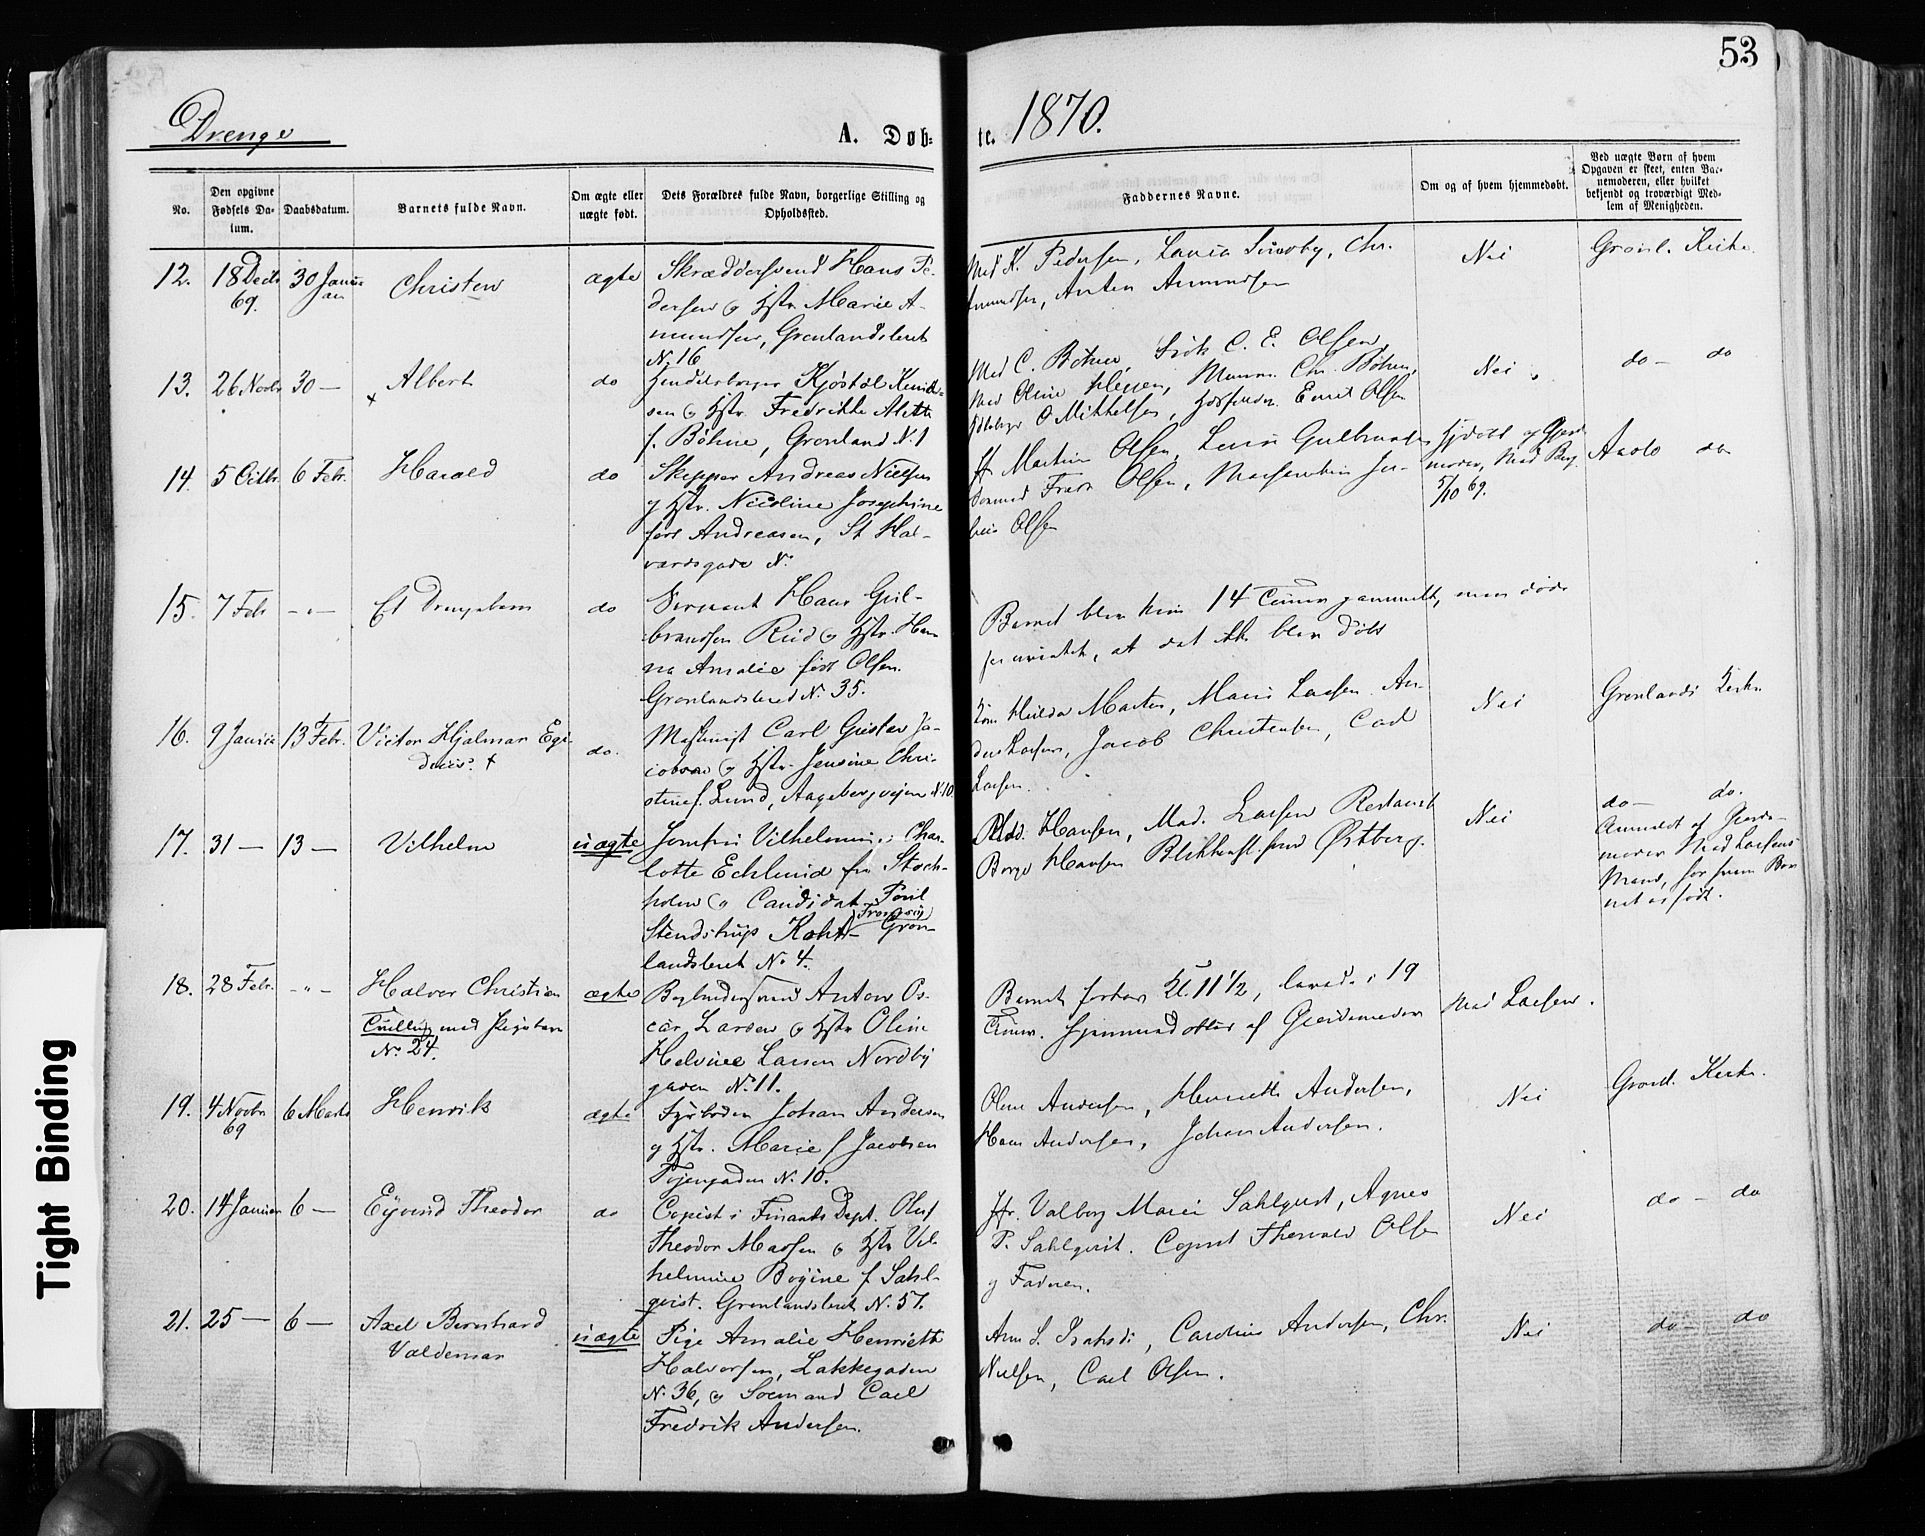 53
Drenge
A. Døb-
te. 1870.
No.
Den opgivne Fødsels Da-
tum.
Daabsdatum.
Barnets fulde Navn.
Om ægte eller
uægte født.
Dets Forældres fulde Navn, borgerlige Stilling og
Opholdssted.
Faddernes Navne.
Om og af hvem hjemmedøbt.
Ved uægte Børn af hvem
Opgaven er skeet, enten Bar-
nemoderen, eller hvilket
bekjendt og troværdigt Med-
lem af Menigheden.
12.
18 Decbr
69.
30 Janu
ar
Christen
ægte
Skræddersvend Hans Pe-
dersen og Hstr Marie A-
mundsen, Grønlandsleret
No 16
Mad K. Pedersen, Laura Sundby, Chr.
Amundsen, Anton Amundsen
Nei
Grønl. Kirke
13.
26 Novbr
30 —
Albert
x
do
Fredrikke
f. Böhne, Grønland N. 1
Mad C. Böhne, C. E. Olsen,
Mad Oline Chr. Böhne,
O Mikkelsen, Olsen
Nei
do — do
14.
5 Octbr
6 Febr.
Harald
do
Skipper Andreas Nielsen
og Hstr. Nicoline Josephine
født Andreasen, St Hal-
vardsgade N.
Jfr Martin Olsen, Gulbrandsen
Olsen,
Olsen
Hjdøbt af Gjord-
moder, Mad Berg
5/10 69.
do
15.
7 Febr
- " -
Et Drengebarn
do
Sergeant Hans Gul-
brandsen Ruud og Hstr. Han
na Amalie født Olsen.
Grønlandsleret N. 35.
Barnet blev kun 14 Timer gammelt, men døde
, at det ikke blev døbt
16.
9 Januar
13 Febr.
Victor Hjalmar Egi-
dius. +
do.
Maskinist Carl Gustav Ja-
cobsen og Hstr. Jensine Chri-
stine f. Lund, Aagebergveien N. 10.
Hulda Marten, Marie Larsen An-
ders Larsen, Jacob Christensen, Carl
Larsen.
Nei
Grønlands Kirke
17.
31 —
13 —
Vilhelm
uægte
Jomfru Vilhelmine Char-
lotte Ecklund fra Stock-
holm og Candidat Poul
Stendstrup Koht
Tromsø
Grøn-
landsleret No 4.
Mad. Hansen, Mad. Larsen
Borge Hansen Østberg.
Nei
do — do.
Anmeldt af Gjorde-
moder Mad Larsens
Mand, hvor Bar
net er født.
18.
28 Febr.
- " -
Halvor Christian
Tvilling med Pigebarn
No. 24.
ægte
Bogbindersvend Anton Os-
car Larsen og Hstr Oline
Helvine Larsen Nordby
gaden No 11.
Barnet fødtes Kl. 11 1/2, levede i 19
Timer. Hjemmedøbt af Gjordemoder
Mad Larsen.
19.
4 Novbr
69
6 Marts
Henrik
ægte
Fyrbøder Johan Andersen
og Hstr. Marie f Jacobsen
Tøiengaden N. 10.
Oline Andersen, Henriette Andersen,
Hans Andersen, Johan Andersen.
Nei
Grønl. Kirke.
20.
14 Januar
6 —
Eyvind Theodor
do
Copist i Finants Dept. Oluf
Theodor Madsen og Hstr Vil-
helmine Bogine f. Sahl-
qvist. Grønlandsleret N. 57.
Jfr. Valborg Marie Sahlqvist, Agnes
P. Sahlqvist. Copist Thorvald Olsen
og Faderen.
Nei
do — do
21.
25 —
6 —
Axel Bernhard
Valdemar
uægte
Pige Amalie Henriette
Halvorsen, Lakkegaden
N. 36, og Sømand Carl
Fredrik Andersen.
Andersen, Chr.
Nielsen, Carl Olsen.
Nei
do — do
Tight Binding